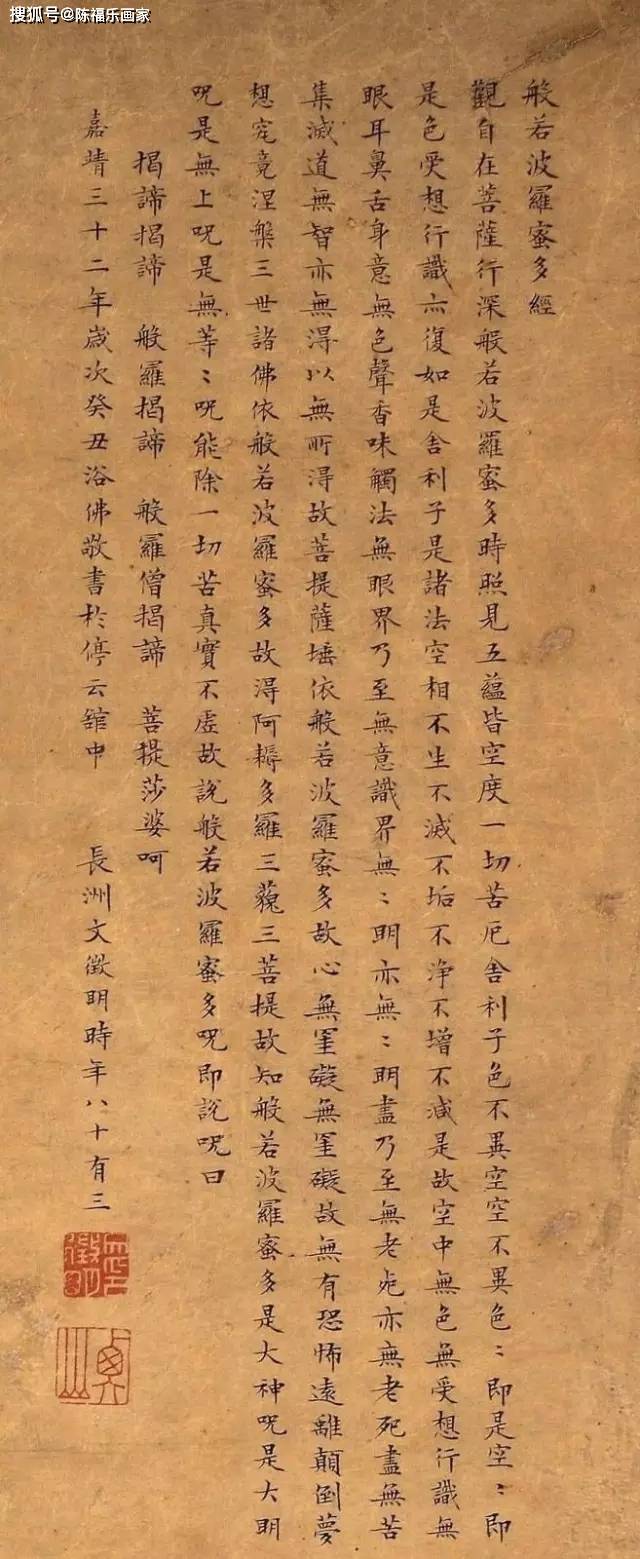 搜狐号@陈福乐画家
般若波羅蜜多經
觀自在菩薩行深般若波羅蜜多時照見五蘊皆空度一切苦厄舍利子色不異空空不異色〻即是空〻即
是色受想行識亦復如是舍利子是諸法空相不生不滅不垢不淨不增不減是故空中無色無受想行識無
眼耳鼻舌身意無色聲香味觸法無眼界乃至無意識界無〻明亦無〻明盡乃至無老死亦無老死盡無苦
集滅道無智亦無得以無所得故菩提薩埵依般若波羅蜜多故心無罣礙無罣礙故無有恐怖遠離顛倒夢
想究竟涅槃三世諸佛依般若波羅蜜多故得阿耨多羅三藐三菩提故知般若波羅蜜多是大神呪是大明
呪是無上呪是無等〻呪能除一切苦真實不虛故說般若波羅蜜多呪即說呪曰
揭諦揭諦 般羅揭諦 般羅僧揭諦 菩提莎婆呵
嘉靖三十二年歲次癸丑浴佛敬書於停云館中 長洲文徵明時年八十有三